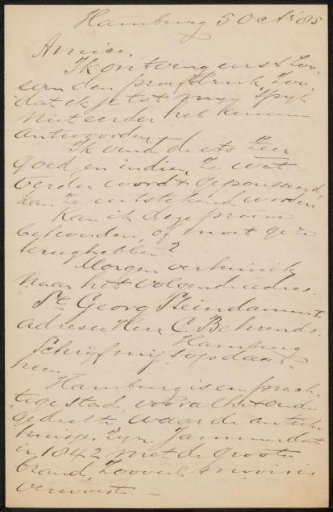 Hamburg 5 Oct. 85
Amice,
Ik ontving eerst
een den proefdruk, zoo
dat ik je tot mijn spijt
niet eerder heb kunnen
antwoorden.
Ik vind de ets zeer
goed, en indien ze wat
verder wordt geponseerd,
kan ze uitstekend worden
Kan ik deze proeve
behouden, of moet ge ze
terughebben?
Morgen verhuis ik
naar het volgend adres.
St. Georg Steindamm
adres Herr C. Behrends.
Hamburg
Schrijf mij s.v.p. daar
heen.
Hamburg is een prach
tige stad, vooral het oude
gedeelte waar de antieke
huisjes zijn. Jammer dat
in 1842 met de groote
brand, zooveel moois
verwoest –